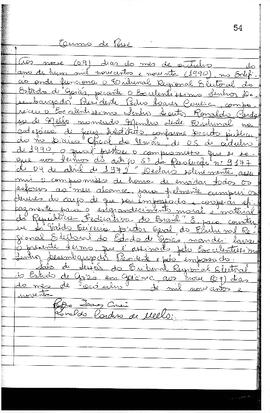 54
Termo de Posse
Aos nove (09) dias do mês de outubro do
ano de hum mil novecentos e noventa (1990), no Edifí-
cio onde funciona o Tribunal Regional Eleitoral do
Estado de Goiás, perante o Excelentíssimo Senhor De-
sembargador Presidente Pedro Soares Correia, compa-
receu o Excelentíssimo Senhor Ronaldo Cardoso
de Mello nomeado Membro deste Tribunal na
categoria de Juiz conforme Decreto publica-
do no Diário Oficial da União, de 05 de outubro
de 1990, o qual prestou o compromisso que se se-
gue nos termos do artigo 5º da Resolução nº 9.177
de 04 de abril de 1972. "Declaro solenemente assu-
mir o compromisso de honra de envidar todos os
esforços ao meu alcance, para fielmente cumprir os
deveres do cargo de que fui empossado e cooperar efi-
cazmente para o engrandecimento moral e material
da República Federativa do Brasil". E para constar
eu Valdo Teixeira Diretor Geral do Tribunal Re-
gional Eleitoral do Estado de Goiás mandei lavrar
o presente termo que é assinado pelo Excelentíssimo
Senhor Desembargador Presidente e pelo empossado.
Sala de Sessões do Tribunal Regional Eleitoral
do Estado de Goiás em Goiânia, aos nove (09) dias
do mês de outubro de mil novecentos e
noventa
Ronaldo Cardoso de Mello